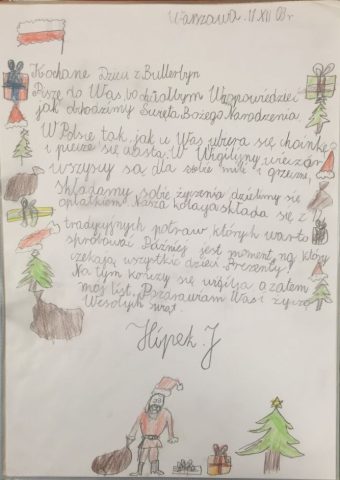 Warszawa 17 XII 08 r.
Kochane Dzieci z Bullerbyn
Piszę do Was, bo chciałbym Wam opowiedzieć
jak obchodzimy Święta Bożego Narodzenia.
W Polsce tak jak u Was ubiera się choinkę
i piecze się ciasta. W Wigilijny wieczór
wszyscy są dla siebie mili i grzeczni,
składamy sobie życzenia dzielimy się
opłatkiem. Nasza kolacja składa się z
tradycyjnych potraw których warto
spróbować. Później jest moment, na który
czekają wszystkie dzieci Prezenty!
Na tym kończy się wigilja a zatem
mój list. Pozdrawiam Was i życzę
Wesołych świąt.
Hipek. J